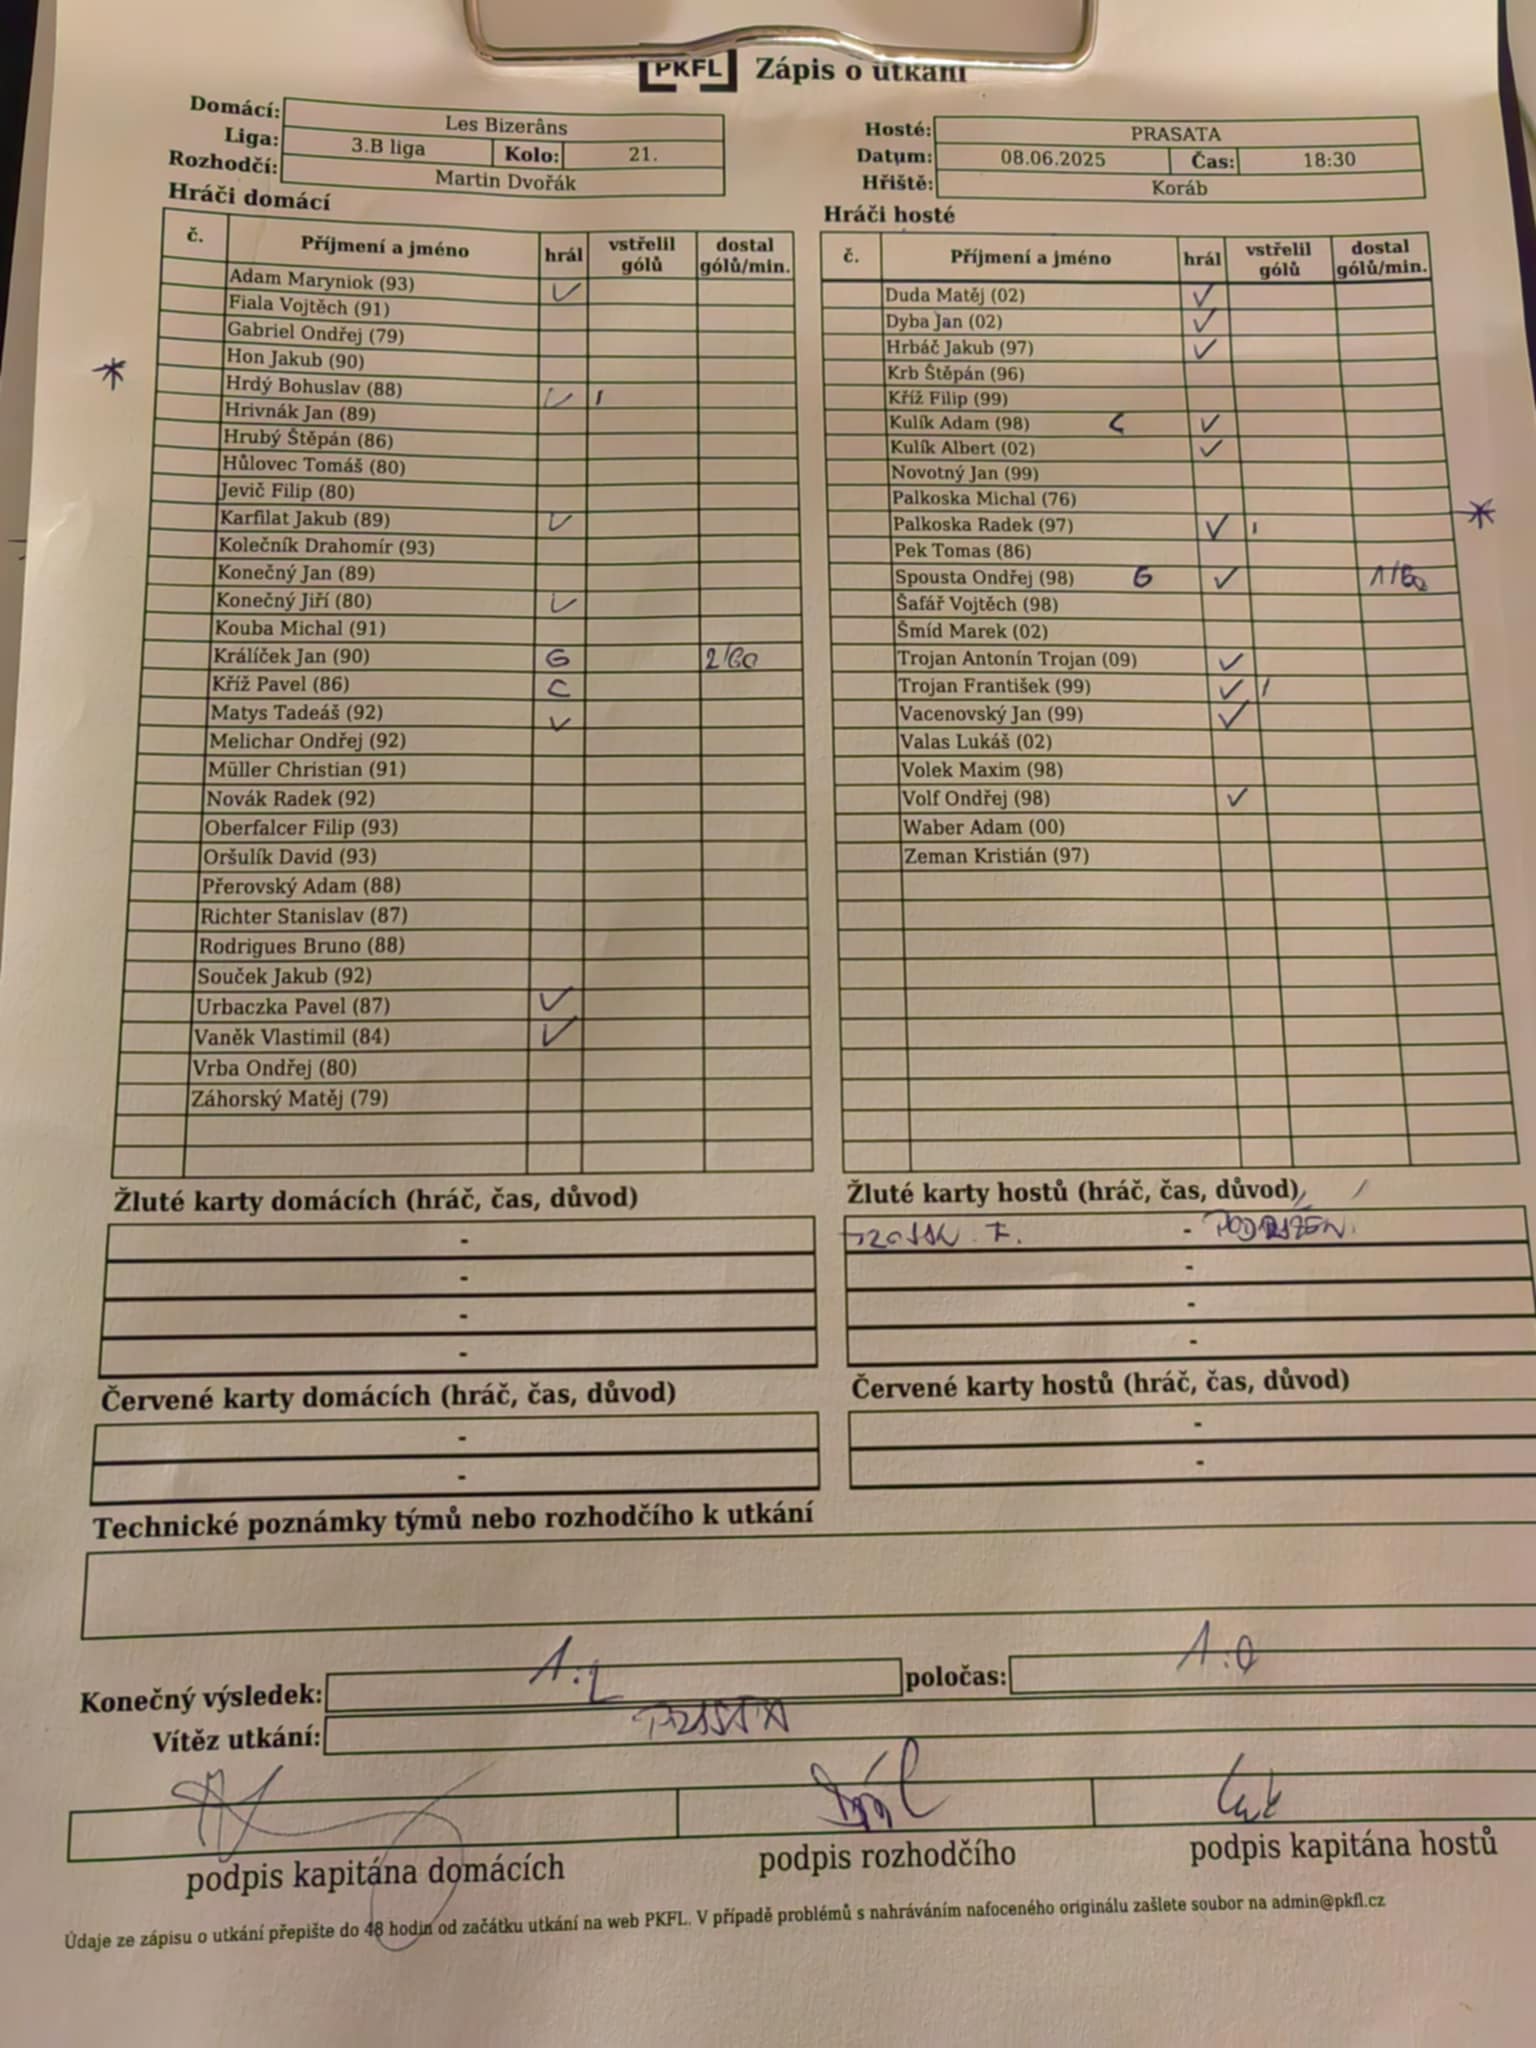 PKFL Zápis o utkání
Domácí: Les Bizerâns
Liga: 3.B liga Kolo: 21.
Rozhodčí: Martin Dvořák
Hosté: PRASATA
Datum: 08.06.2025 Čas: 18:30
Hřiště: Koráb
Hráči domácí
č. Příjmení a jméno hrál vstřelil gólů dostal gólů/min.
Adam Maryniok (93) ✓
Fiala Vojtěch (91)
Gabriel Ondřej (79)
Hon Jakub (90)
* Hrdý Bohuslav (88) ✓ 1
Hrivnák Jan (89)
Hrubý Štěpán (86)
Hůlovec Tomáš (80)
Jevič Filip (80)
Karfilat Jakub (89) ✓
Kolečník Drahomír (93)
Konečný Jan (89)
Konečný Jiří (80) ✓
Kouba Michal (91)
Králíček Jan (90) G 2/60
Kříž Pavel (86) C
Matys Tadeáš (92) ✓
Melichar Ondřej (92)
Müller Christian (91)
Novák Radek (92)
Oberfalcer Filip (93)
Oršulík David (93)
Přerovský Adam (88)
Richter Stanislav (87)
Rodrigues Bruno (88)
Souček Jakub (92)
Urbaczka Pavel (87) ✓
Vaněk Vlastimil (84) ✓
Vrba Ondřej (80)
Záhorský Matěj (79)
Hráči hosté
č. Příjmení a jméno hrál vstřelil gólů dostal gólů/min.
Duda Matěj (02) ✓
Dyba Jan (02) ✓
Hrbáč Jakub (97) ✓
Krb Štěpán (96)
Kříž Filip (99)
Kulík Adam (98) C ✓
Kulík Albert (02) ✓
Novotný Jan (99)
Palkoska Michal (76)
Palkoska Radek (97) ✓ 1 *
Pek Tomas (86)
Spousta Ondřej (98) G ✓ 1/60
Šafář Vojtěch (98)
Šmíd Marek (02)
Trojan Antonín Trojan (09) ✓
Trojan František (99) ✓ 1
Vacenovský Jan (99) ✓
Valas Lukáš (02)
Volek Maxim (98)
Volf Ondřej (98) ✓
Waber Adam (00)
Zeman Kristián (97)
Žluté karty domácích (hráč, čas, důvod)
-
-
-
-
Žluté karty hostů (hráč, čas, důvod)
F. - PODRAŽEN.
-
-
-
Červené karty domácích (hráč, čas, důvod)
-
-
Červené karty hostů (hráč, čas, důvod)
-
-
Technické poznámky týmů nebo rozhodčího k utkání
Konečný výsledek: 1:2 poločas: 1:0
Vítěz utkání: PRASATA
podpis kapitána domácích podpis rozhodčího podpis kapitána hostů
Údaje ze zápisu o utkání přepište do 48 hodin od začátku utkání na web PKFL. V případě problémů s nahráváním nafoceného originálu zašlete soubor na admin@pkfl.cz